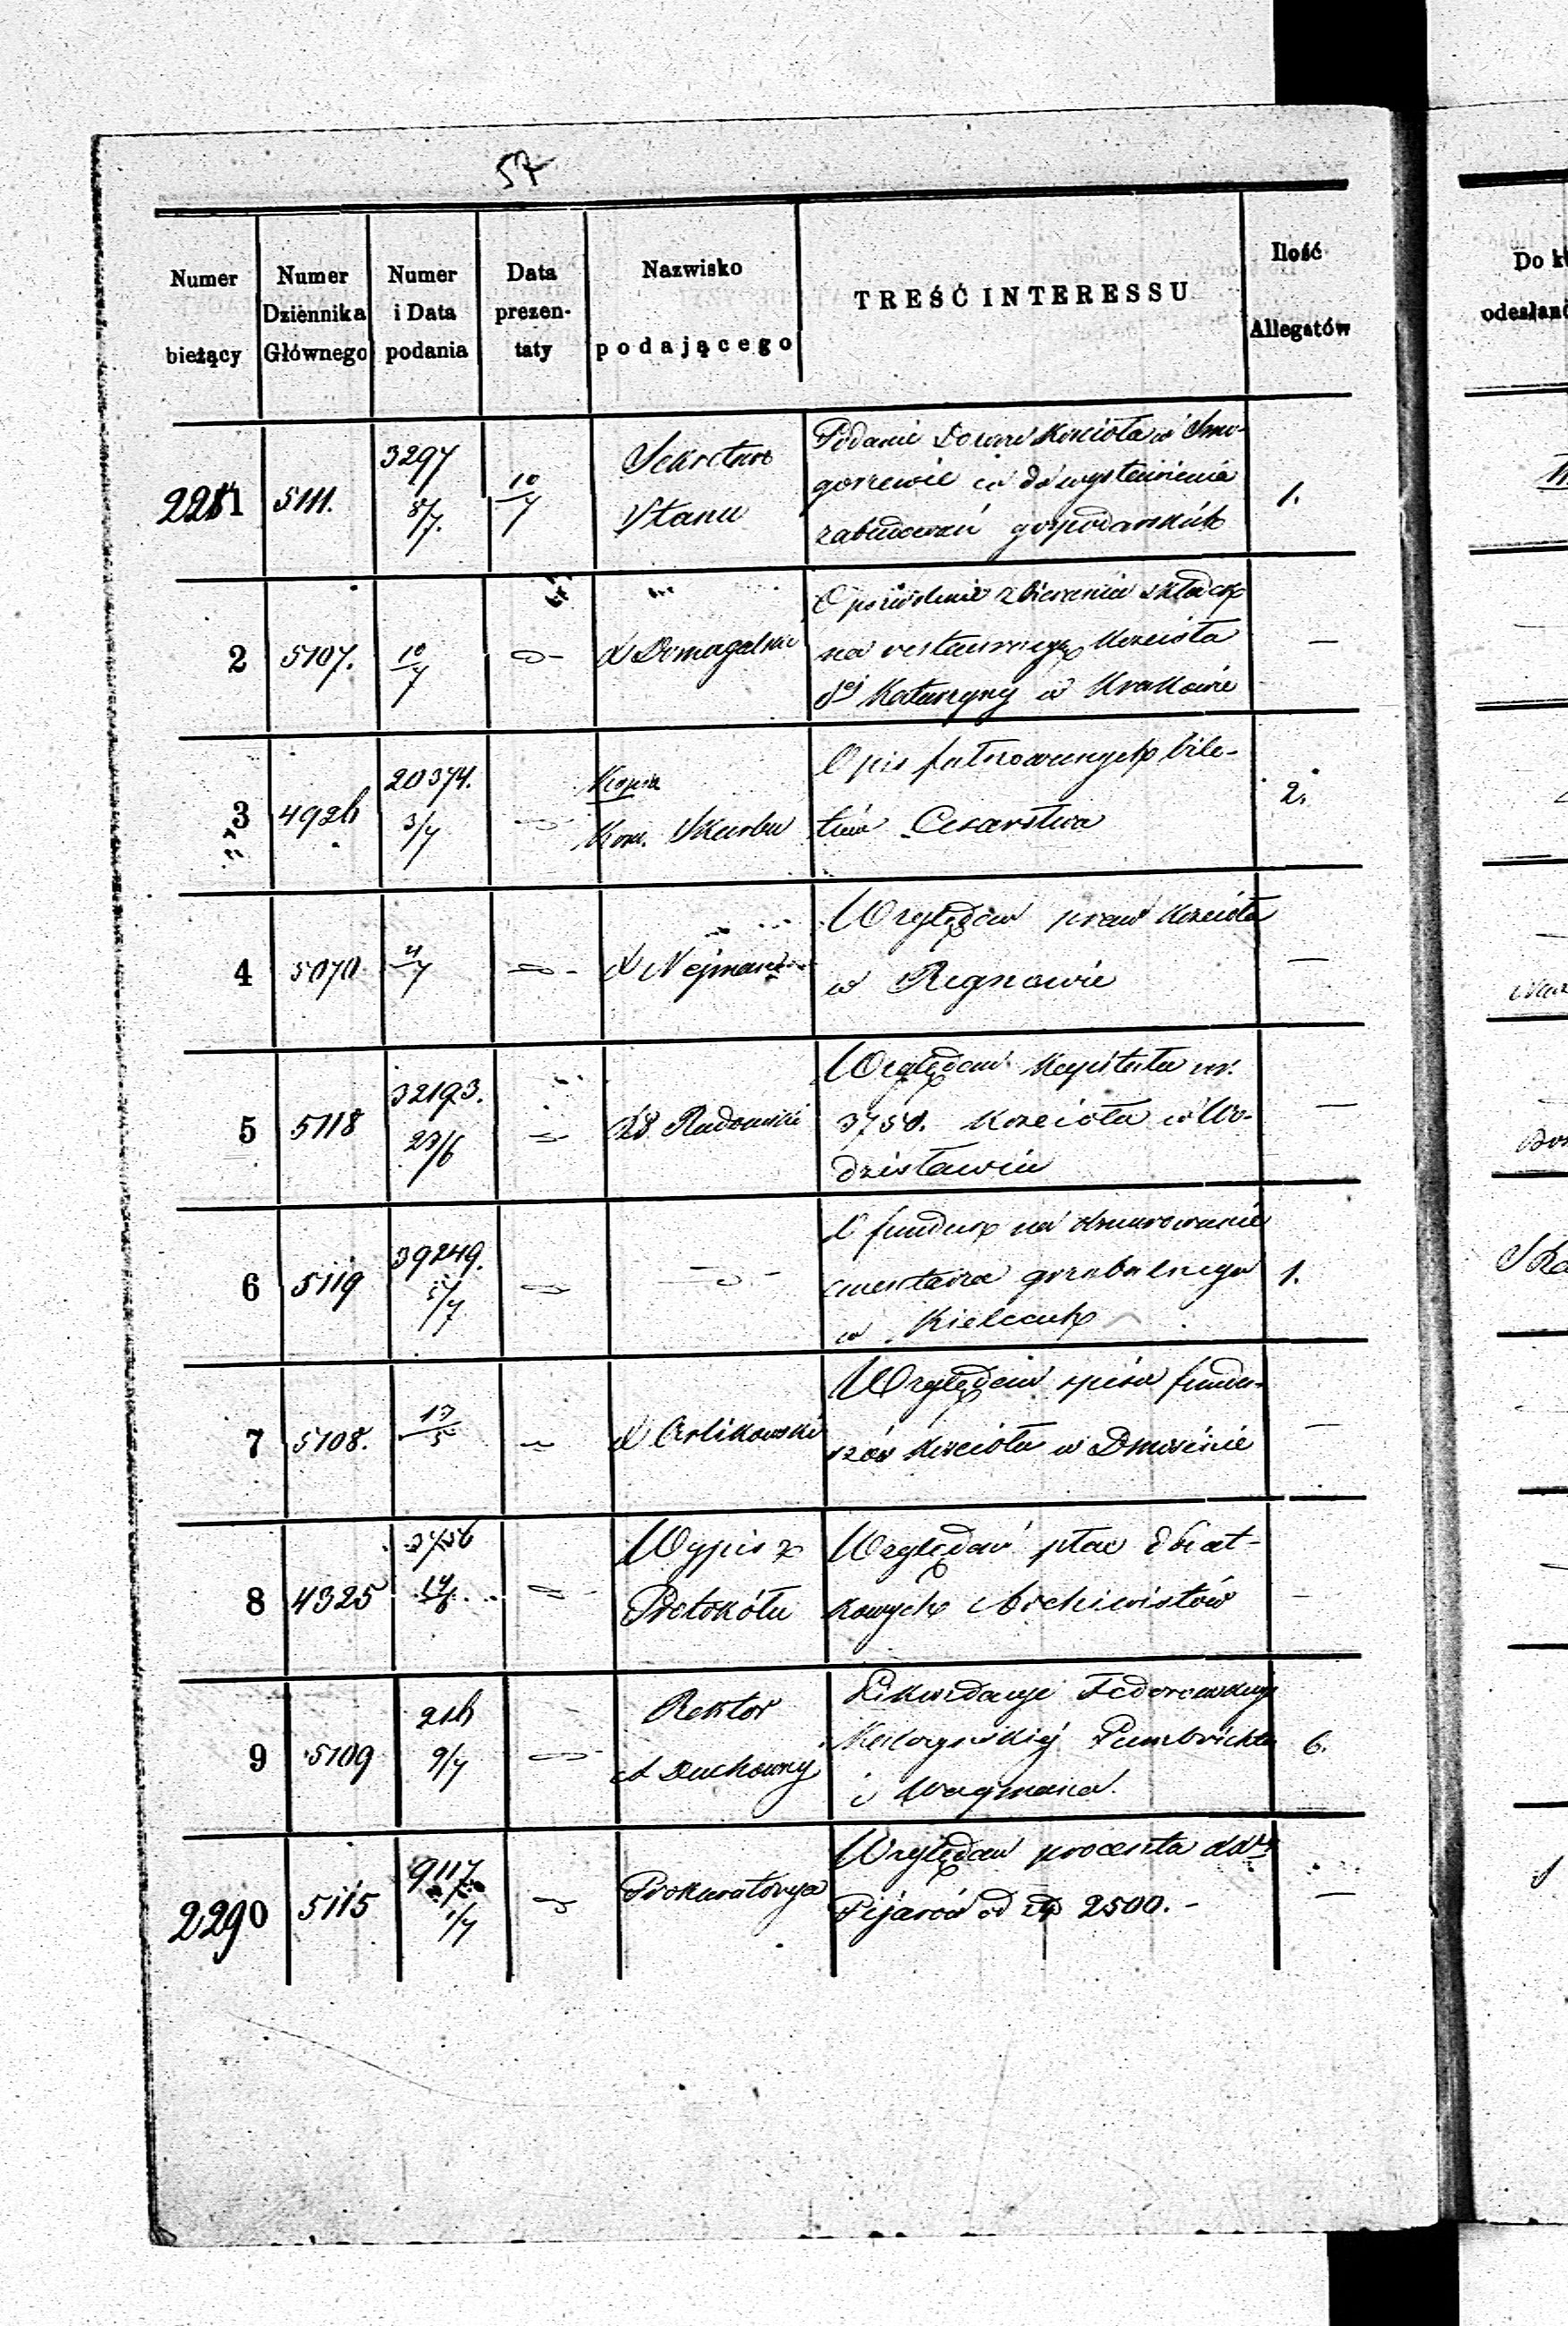 57
Numer bieżący | Numer Dziennika Głównego | Numer i Data podania | Data prezentaty | Nazwisko podającego | TREŚĆ INTERESSU | Ilość Allegatów
2281 | 5111. | 3297 8/7. | 10/7 | Sekretarz Stanu | Podanie Dozoru Kościoła w Smo-
gorzewie co do wystawienia
zabudowań gospodarskich | 1.
2 | 5107. | 10/7 | X Domagalski | O pozwolenie zbierania składek
na restauracyę Kościoła
Sej Katarzyny w Krakowie | —
3 | 4926 | 20374. 3/7 | Kopia Kom. Skarbu | Opis fałszowanych bile-
tów Cesarstwa | 2.
4 | 5070 | 4/7 | X Nejman | Względem praw Kościoła
w Regnowie | —
5 | 5118 | 32193. 23/6 | Radomski | Względem Kapitału
3750. Kościoła w Wo-
dzisławiu | —
6 | 5119 | 39249. | O fundusz na obmurowanie
cmentarza grzebalnego
w Kielcach | 1.
7 | 5108. | 13/5 | X Orlikowski | Względem spisu fundu-
szów Kościoła w Dmosinie | —
8 | 4325 | 3756 | Wypis z Protokółu | Względem płac dodat-
kowych Archiwistów | —
9 | 5109 | 216 9/7 | Rektor A Duchowny | Likwidacye
i Wagmana. | 6.
2290 | 5115 | 9117 1/7 | Prokuratorya | Względem procenta dla
Pijarów od zp 2500. - | —
Do k
odesłane